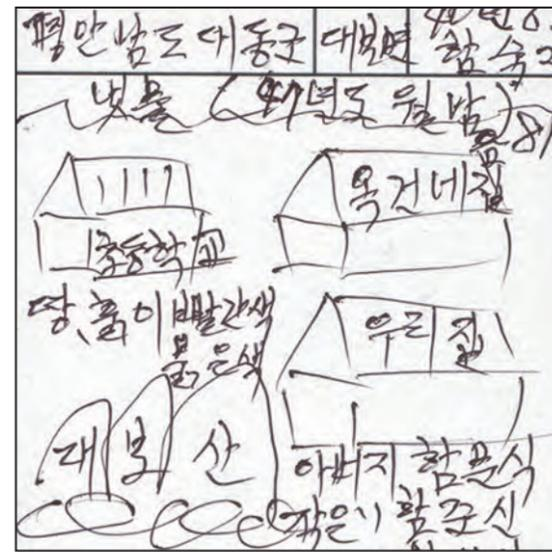 평안남도 대동군 대보면
함숙
냇물 (47년도 월남)
옥건네집
초등학교
땅, 흙이 빨간색
붉은색
우리집
대보산
아버지 함문식
작은 함준신